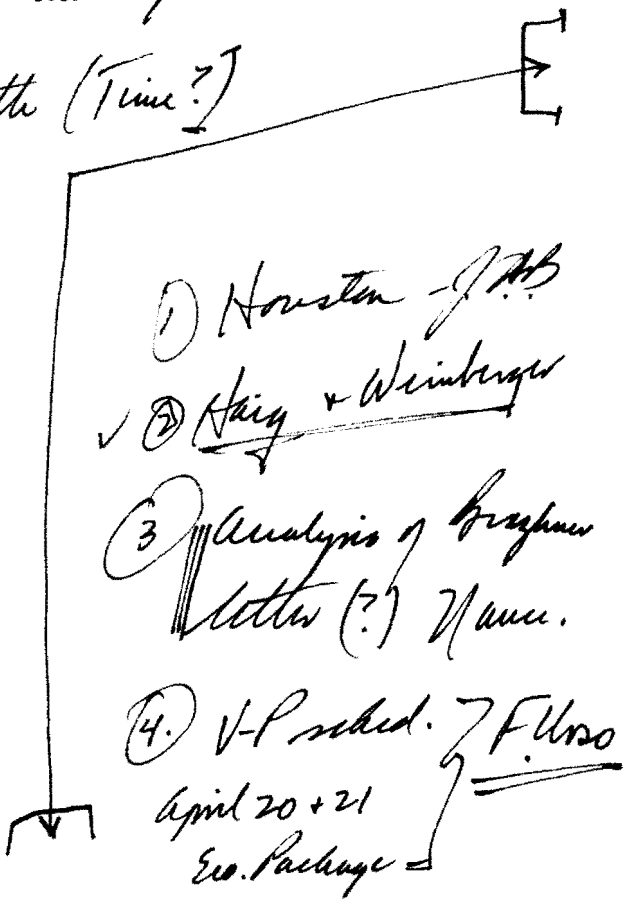 (Time?)
① Houston - J.A.B
✓ ② Haig + Weinberger
③ Analysis of Brezhnev
letter (?) Nance.
④. V-P sched. F. Urso
April 20 + 21
Eco. Package